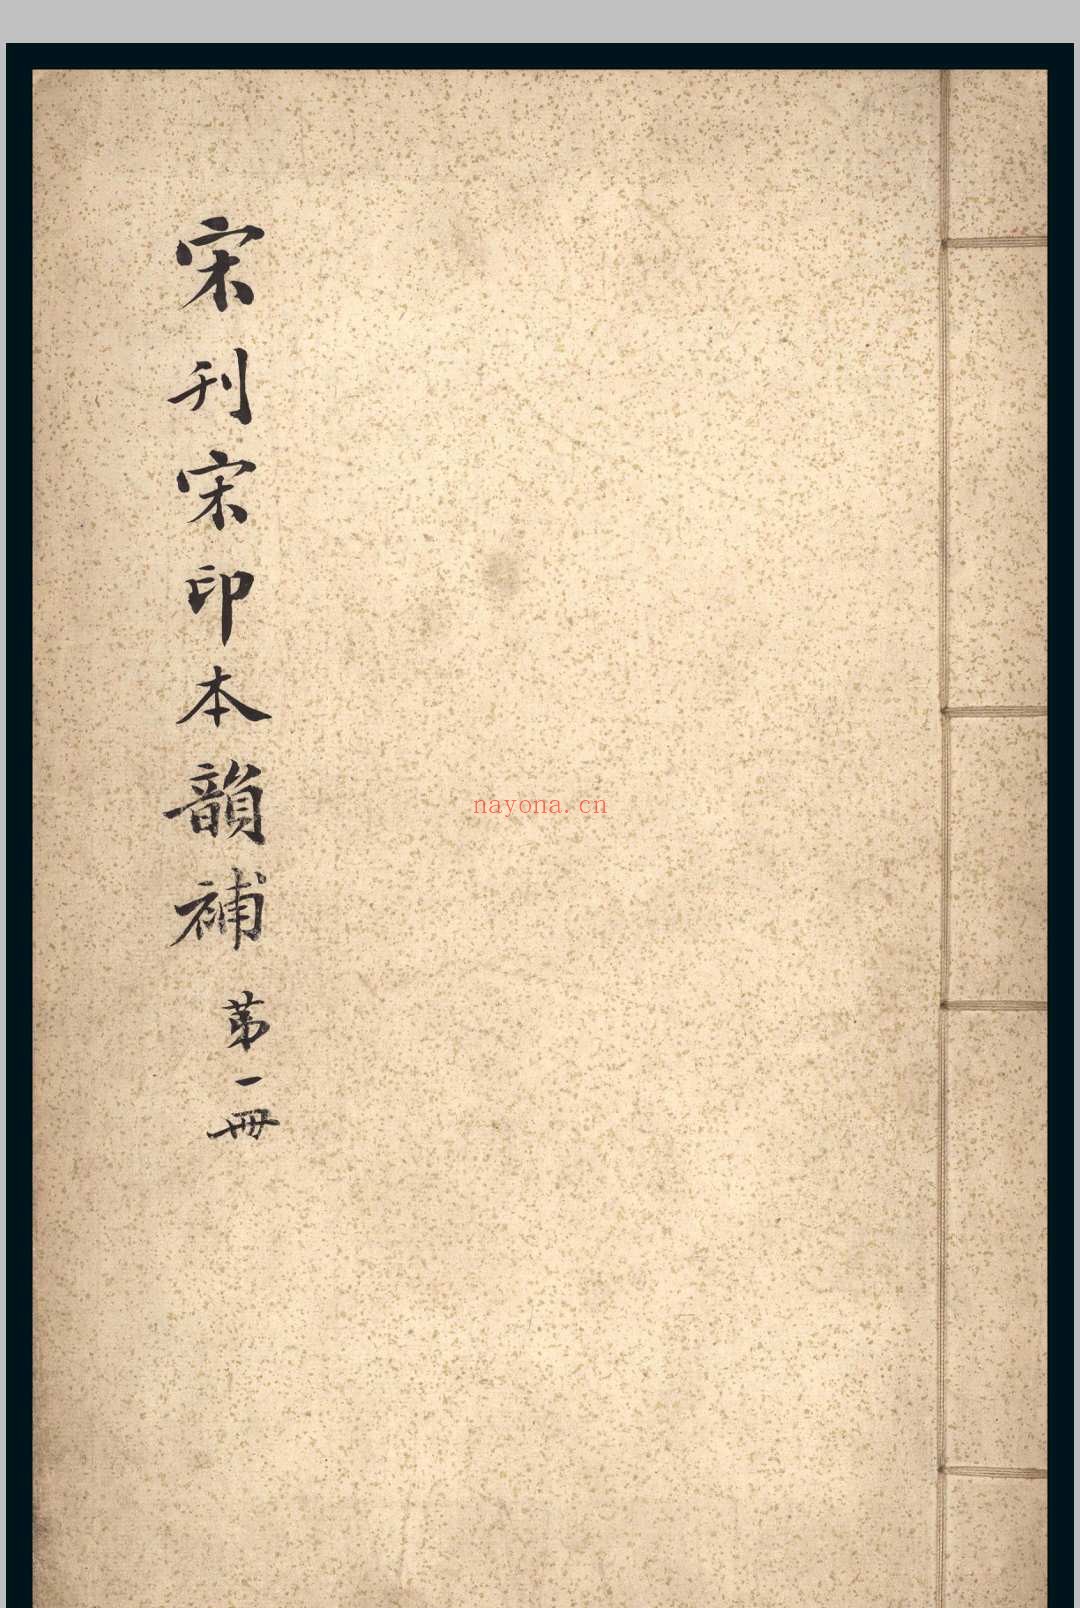 宋刊宋印本韻補 第一冊
nayona.cn